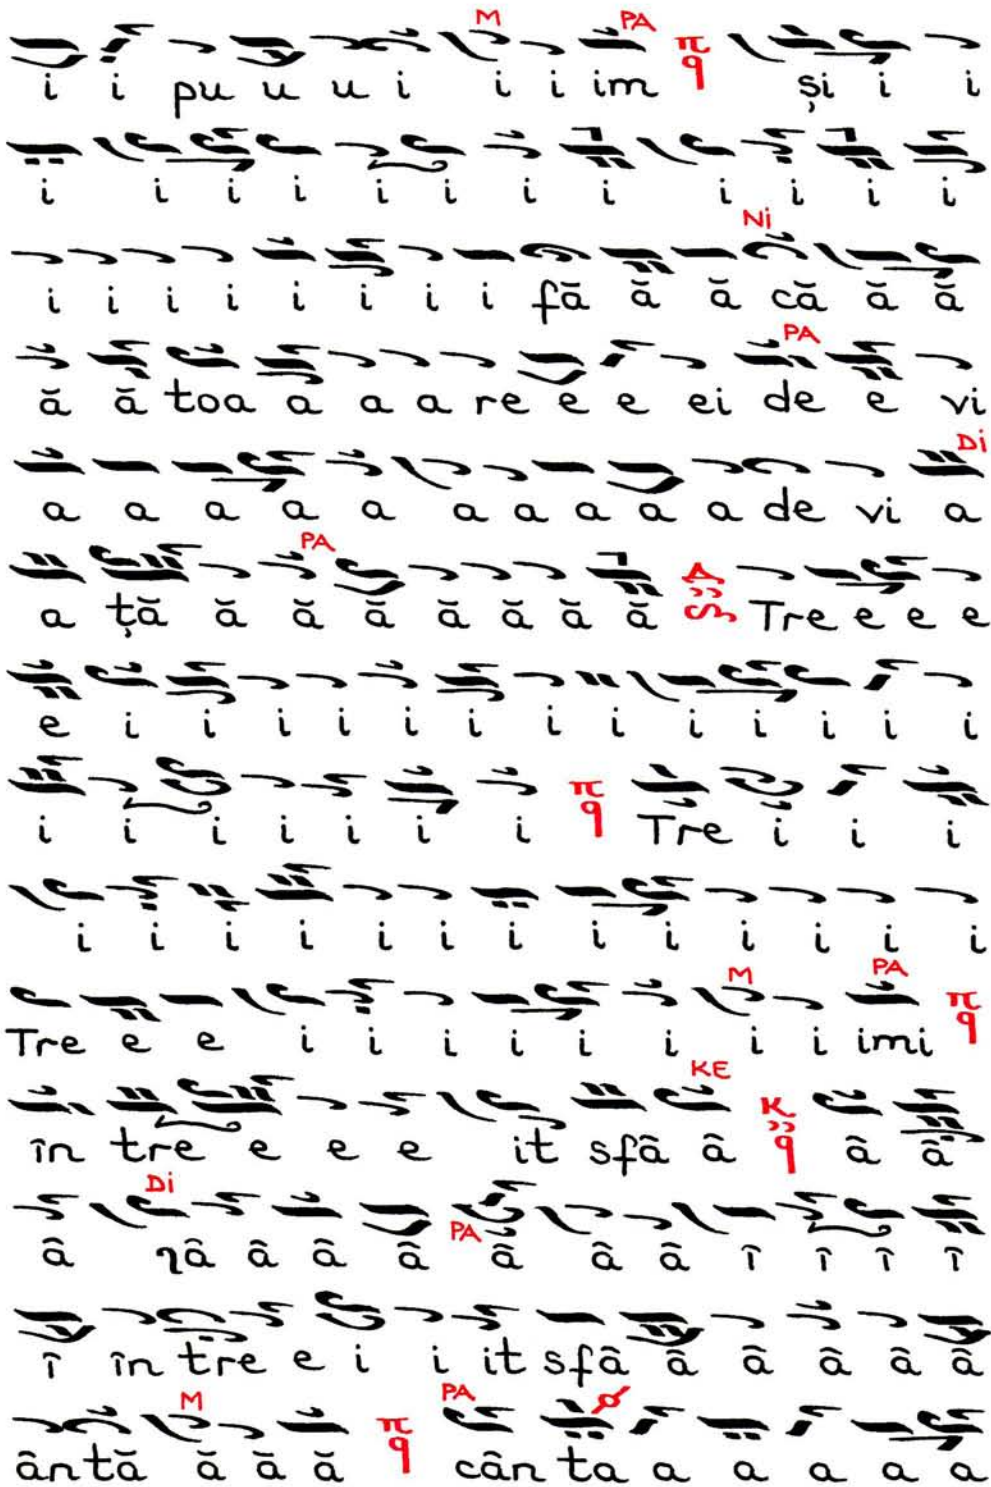 M PA
i i pu u u i i i im π q și i i
i i i i i i i i i i i i
Ni
i i i i i i i i fă ă ă că ă ă
PA
ă ă toa a a a re e e ei de e vi
Di
a a a a a a a a a a de vi a
PA
a ță ă ă ă ă ă ă ă Tre e e e
e i i i i i i i i i i i i i
i i i i i i i π q Tre i i i
i i i i i i i i i i i i i
M PA
Tre e e i i i i i i i i imi π q
KE
în tre e e e it sfâ â K q â â
Di
PA
â ηâ â â â â â â î î î î
î în tre e i i it sfâ â â â â â
M PA
ântă ă ă ă π q cân ta a a a a a